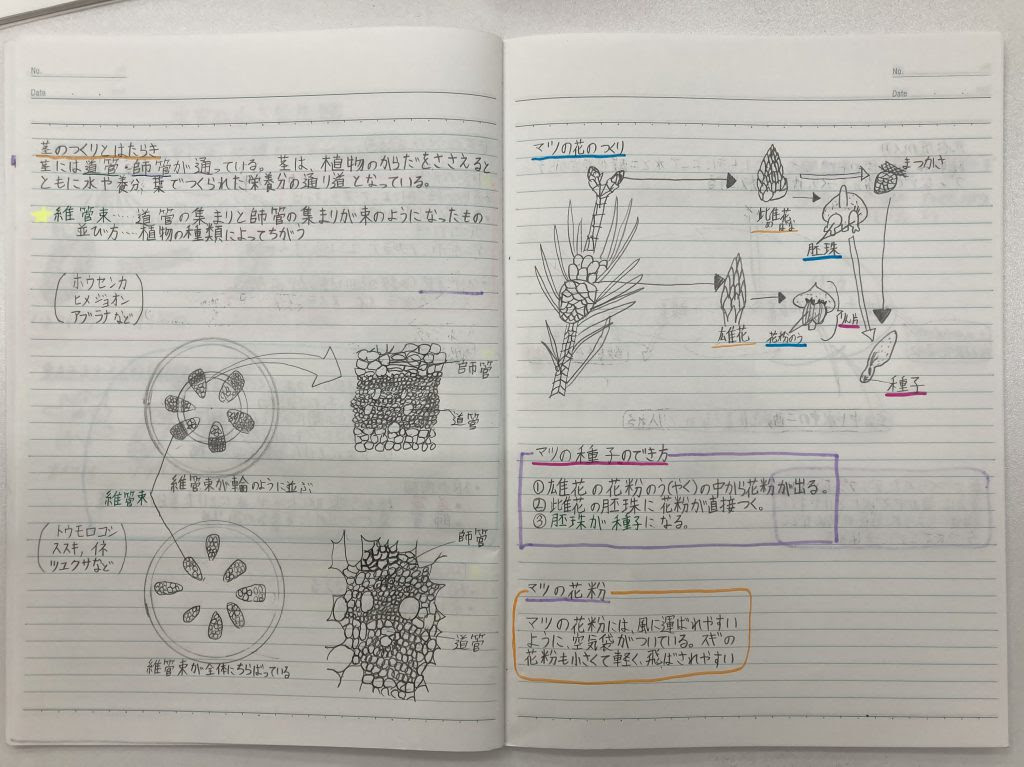 No.
Date
茎のつくりとはたらき
茎には道管・師管が通っている。茎は、植物のからだをささえると
ともに水や養分、葉でつくられた栄養分の通り道となっている。
維管束…‥道管の集まりと師管の集まりが束のようになったもの
並び方…‥植物の種類によってちがう
ホウセンカ
ヒメジョオン
アブラナなど
師管
道管
維管束が輪のように並ぶ
維管束
トウモロコシ
ススキ,イネ
ツユクサなど
師管
道管
維管束が全体にちらばっている
No.
Date
マツの花のつくり
まつかさ
雌花
めばな
胚珠
雄花
花粉のう
りん片
種子
マツの種子のでき方
①雄花の花粉のう(やく)の中から花粉が出る。
②雌花の胚珠に花粉が直接つく。
③胚珠が種子になる。
マツの花粉
マツの花粉には、風に運ばれやすい
ように、空気袋がついている。スギの
花粉も小さくて軽く、飛ばされやすい